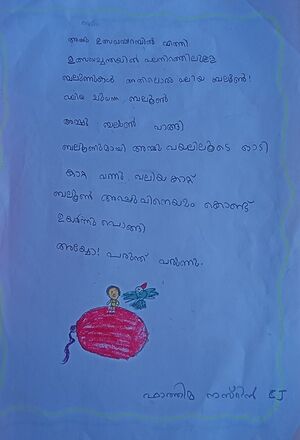 അമ്മു ഉത്സവപറമ്പിൽ എത്തി
ഉത്സവപ്പറമ്പിൽ പലനിറത്തിലുള്ള
ബലൂണുകൾ അതിലൊരു വലിയ ബലൂൺ!
വലിയ ചുവന്ന ബലൂൺ
അമ്മു ബലൂൺ വാങ്ങി
ബലൂണുമായി അമ്മു വയലിലൂടെ ഓടി
കാറ്റ് വന്നു വലിയ കാറ്റ്
ബലൂൺ അമ്മുവിനെയും കൊണ്ട്
ഉയർന്നു പൊങ്ങി
അയ്യോ! പരുന്ത് വരുന്നു.
ഫാത്തിമ നസ്റിൻ CJ